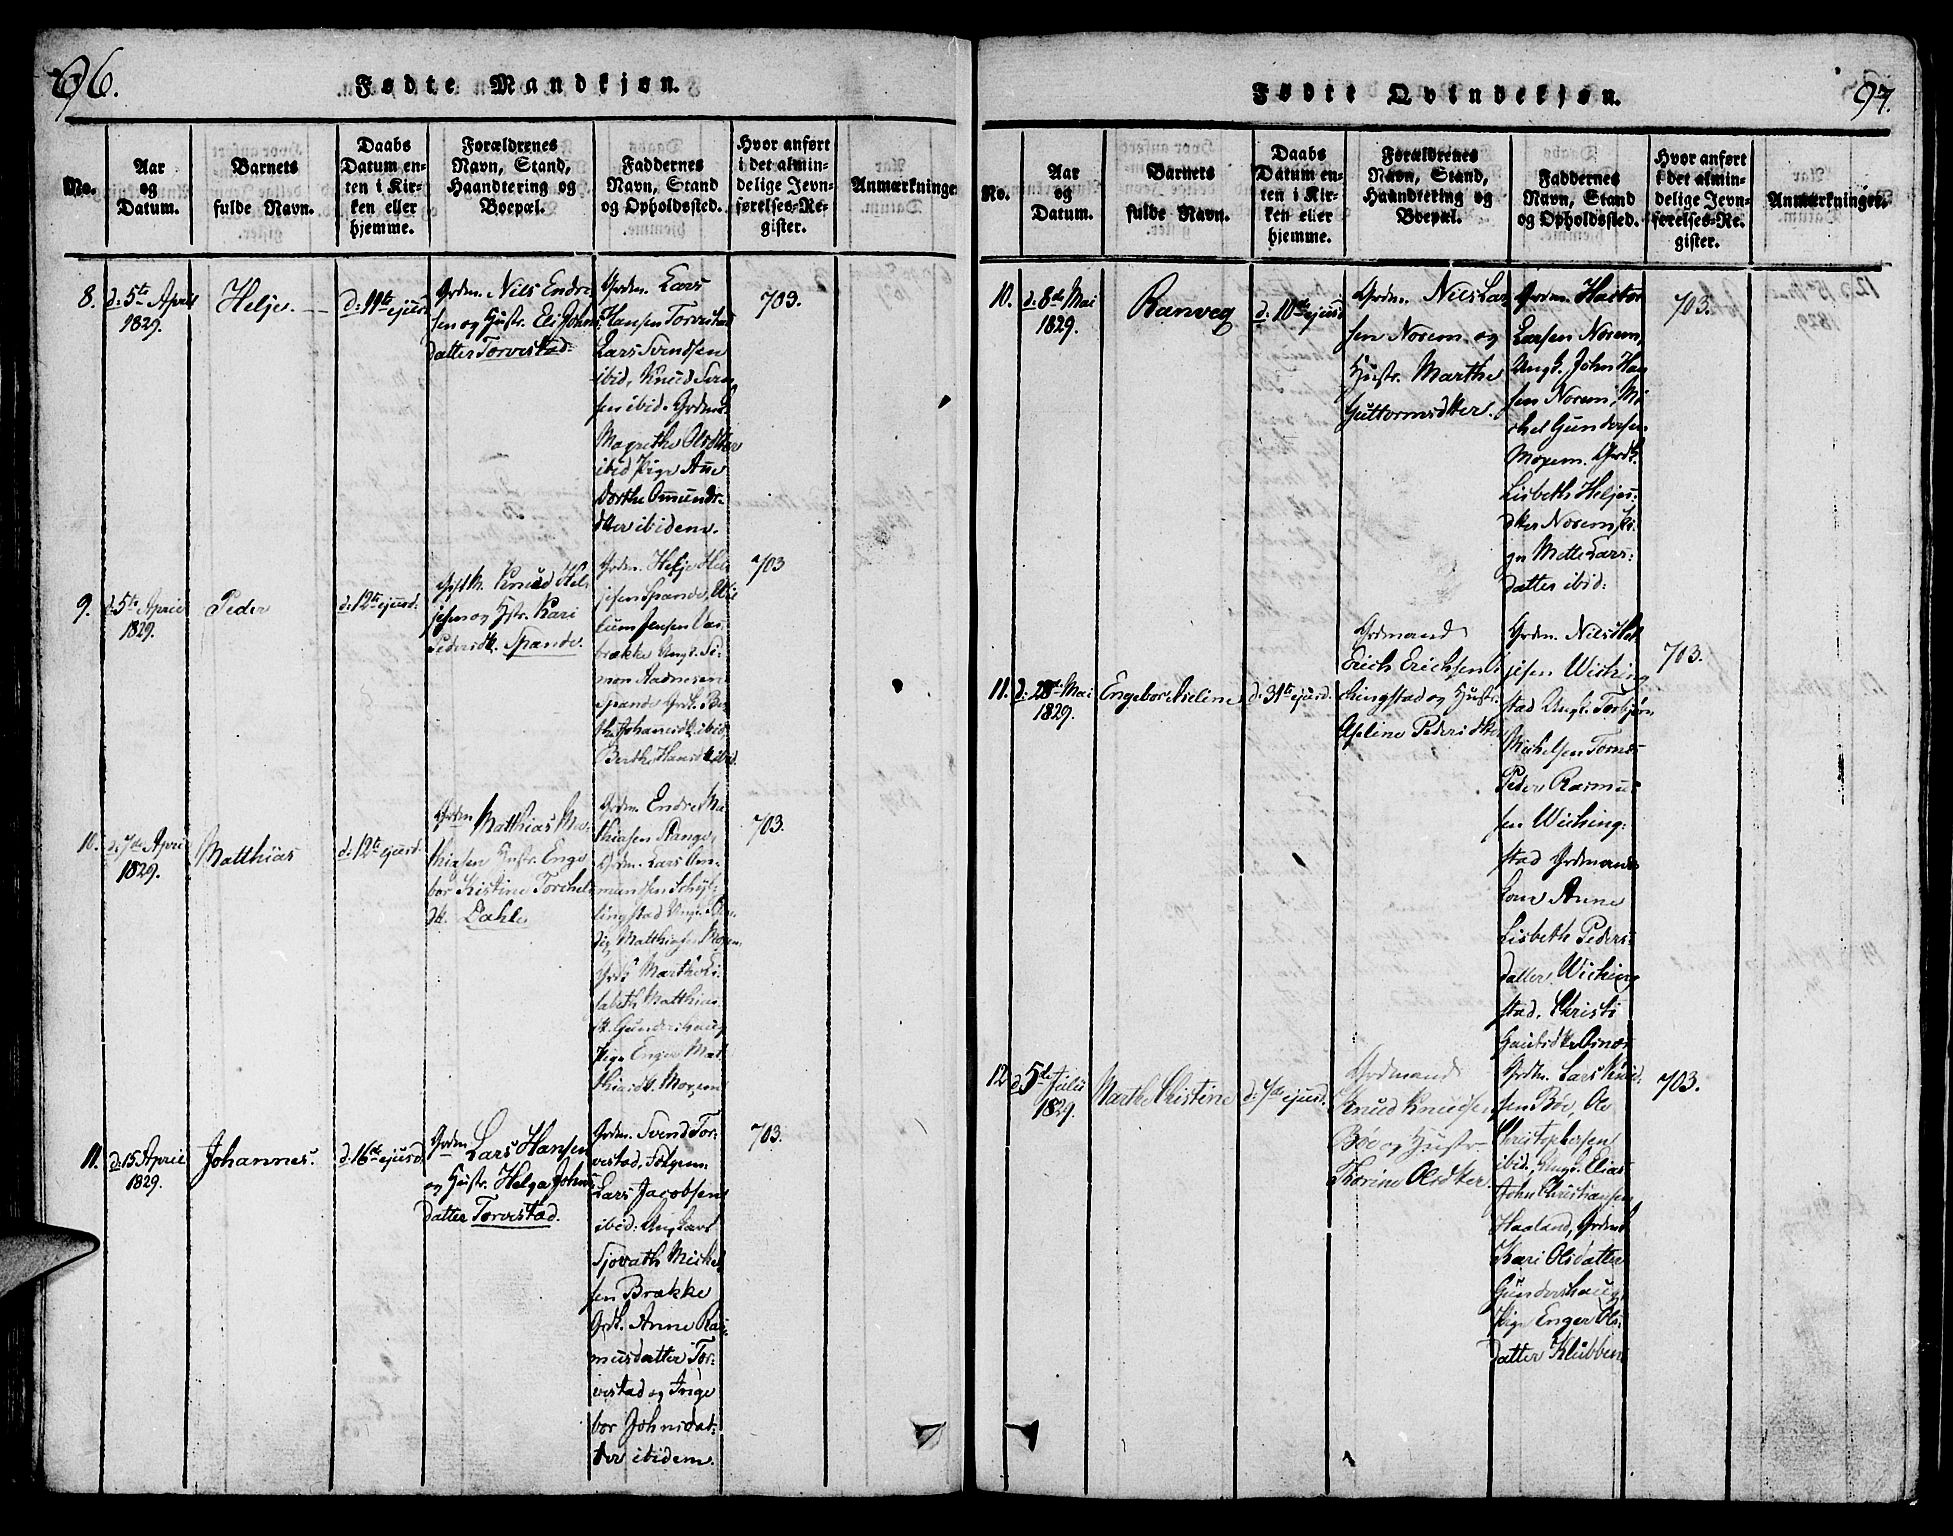 96.
Fødte Mandkjøn.
No.
Aar
og
Datum.
Barnets
fulde Navn.
Daabs
Datum en-
ten i Kir-
ken eller
hjemme.
Forældrenes
Navn, Stand,
Haandtering og
Boepæl.
Faddernes
Navn, Stand
og Opholdssted.
Hvor anført
i det almin-
delige Jevn-
førelses-Re-
gister.
Anmærkninger
8.
d: 5te April
1829.
Helje.
d: 11te ejusd
Grdm. Nils Endre
sen og Hustr. Eli Johns
datter Torvestad.
Grdm. Lars
Hansen Torvestad
Lars Svendsen
ibid, Knud Sven
sen ibid. Grdmd.
Magrethe Olsdtter
ibid Pige Ane
Dorthe Omunds-
dtter ibidem.
703.
9.
d: 5te April
1829.
Peder
d: 12te ejusd:
Knud Hel-
jesen og Hstr. Kari
Pedersdt. Spande.
Grdm. Helje Hel
jesen Spande,
Jensen
brække Ungk. Si-
mon Aadnesen
Spande
Johannsdt. ibid
Berthe Hansdt ibid.
703
10.
d: 7de April
1829.
Matthias
d: 12te ejusd.
Grdm Matthias Ma-
thiasen Hustr. Enge
bor Kistine Torchels
dt. Dahle
Grdm. Endre Ma
thiasen Stange,
Grdm. Lars Om-
mundsen
lingstad Ungk.
Matthiasen Moxem,
Marthe Li-
sabeth Matthias
dt. Gundershoug
Pige Enger Mat
thiasdt. Moxem
703.
11.
d: 15 April
1829.
Johannes.
d: 16te ejusd.
Grdm Lars Hansen
og Hustr. Helga Johns
datter Torvestad.
Grdm. Svend Tor-
vestad,
Lars Jacobsen
ibid:
Sjovath Mickel
sen Brække
Grdk. Anne Ras-
musdatter Tor-
vestad og Inge
bor Johnsdat-
ter ibidem.
703.
97.
Fødte Qvindekjøn.
No.
Aar
og
Datum.
Barnets
fulde Navn.
Daabs
Datum en-
ten i Kir-
ken eller
hjemme.
Forældrenes
Navn, Stand,
Haandtering og
Boepæl.
Faddernes
Navn, Stand
og Opholdssted.
Hvor anført
i det almin-
delige Jevn-
førelses-Re-
gister.
Anmærkninger.
10.
d: 8de Mai
1829.
Ranveg
d: 10de ejusd
Grdm. Nils Lar
sen Norem og
Hustr. Marthe
Guttormsdtter.
Grdm.
Larsen Norem,
Ungk. John Han
sen Norem, Mi
chel Gundersen
Moxem. Grdk.
Lisbeth Heljes-
dtter Norem, Pi-
ge Mette Lars-
datter ibid:
703.
11.
d: 28de Mai
1829.
Engebor Aseline
d: 31te ejusd.
Grdmand
Erich Erichsen Vi
chingstad og Hustr.
Aseline Pedersdtter
Grdm. Nils Hel
jesen Wiching
stad Ungk. Torbjørn
Michelsen
Peder Rasmus
sen Wiching-
stad Grdmands
Kone Anne
Lisbeth Peders-
datter Wiching
stad, Christi
Gautsdtter Osnæs
703.
12
d: 5te Julii
1829.
Marthe Christine
d: 7de ejusd.
Grdmand
Knud Knudsen
Bøe og Hustr
Thorine Olsdtter.
Grdm. Lars Knud-
sen Bøe, Ole
Christophersen
ibid., Ungk. Elias
John Christiansen
Haaland, Grdmk
Kari Olsdatter
Gundershaug
Pige Enger Ols-
datter Klubben
703.